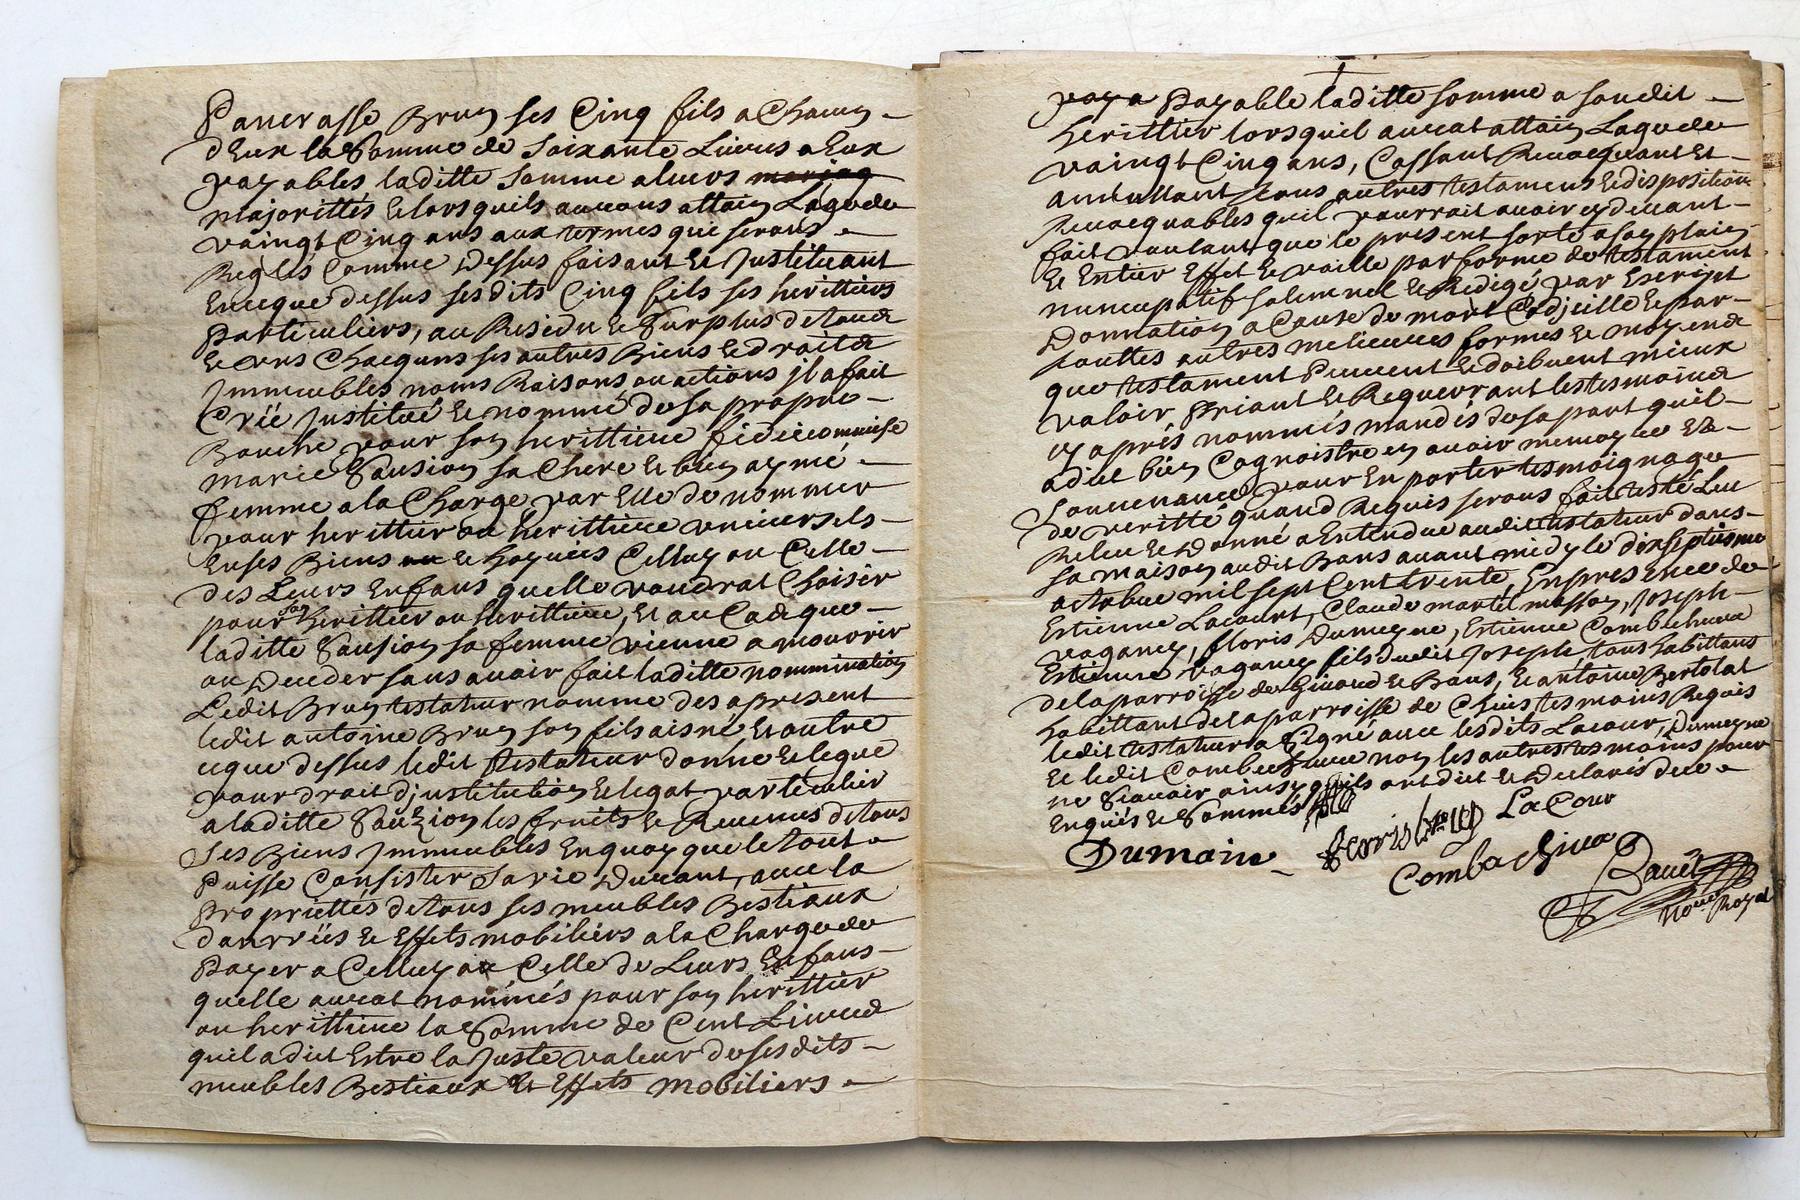 Pancrasse Brun ses Cinq fils a Chacun
d'Eux la Somme de Soixante Livres a Eux
payables laditte Somme a leurs
majorittés & lorsquils auront attain Lagede
vaingt Cinq ans aux termes que seront
Reglés Comme Dessus faisant & Justituant
Enceque dessus sesdits Cinq fils ses herittiers
particuliers, au Residu & Surplus detous
& Chacguns ses autres Biens & droits
Jmmeubles noms Raisons ou actions jl a fait
Créé Justitué & nommé de sa propre
Bouche pour son herittiere fideicommise
marie Sausion sa Chere & bien aymé
femme a la Charge par Elle de nommer
pour herittier ou herittiere universels
Enses Biens & hoyries Celluy ou Celle
des Leurs Enfans quelle voudrat Choisir
pour son herittier ou herittiere, Et au Cas que
laditte Sausion sa femme vienne a mourrir
ou Deceder sans avoir fait laditte nommination
Ledit Brun testateur nomme des apresent
ledit antoine Brun son fils aisné Et outre
ceque dessus ledit testateur donne & legue
pour droit djnstitution & legat particulier
a laditte Sauzion les fruits & Revenus detous
Ses Biens Jmmeubles Enquoy que le tout
Puisse Consister Sa vie Durant, avec la
Propriettés detous ses meubles Bestiaux
danrrées & Effets mobiliers a la Charge de
Payer a Celluy ou Celle de Leurs Enfans
quelle aurat nommés pour son herittier
ou herittiere la Somme de Cent Livres
quil a dict Estre la Juste valeur de sesdits
meubles Bestiaux & Effets mobiliers
Payable laditte somme a sondit
herittier lorsquil aurat attain Lagede
vaingt Cinq ans, Cassant Revocquant Et
annullant tous autres testamens & disposition
Revocquables quil pourrait avoir cy devant
fait voulant que le present sorte a son plain
& Entier Effet & vaille par forme de testament
nuncupatif solemnel & Redigé par Escript
Donnation a Cause de mort Codjcille & par
touttes autres melieures formes & moyens
que testament Peuvent & doibvent mieux
valoir Priant & Requerrant les tesmoins
cy aprés nommés mandés de sa part quil
a dict bien Cognoistre en avoir memoyre &
Souvenance pour En porter tesmoignage
de veritté quand Requis serons fait testé Leu
Releu & Donné a Entendre audit testateur dans
sa maison audit Bans avant midy le dixseptiesme
octobre mil sept Cent trente, En presence de
Estienne Lacourt, Claude martel masson, Joseph
vaganey, floris Dumeyne, Estienne Combechieure
Estienne vaganey fils dudit Joseph, tous habittans
de la parroisse de Givord & Bans, & antoine Bertolat
habittant de la parroisse de Chirs tesmoins Requis
ledit testateur a Signé avec lesdits Lacour, Dumeyne
& ledit Combe avec non les autres tesmoins pour
ne Scavoir ainsy quils ont dict & Declarés de ce
Enquis & Sommés
Dumaine LaCour
Combachieur
Royal